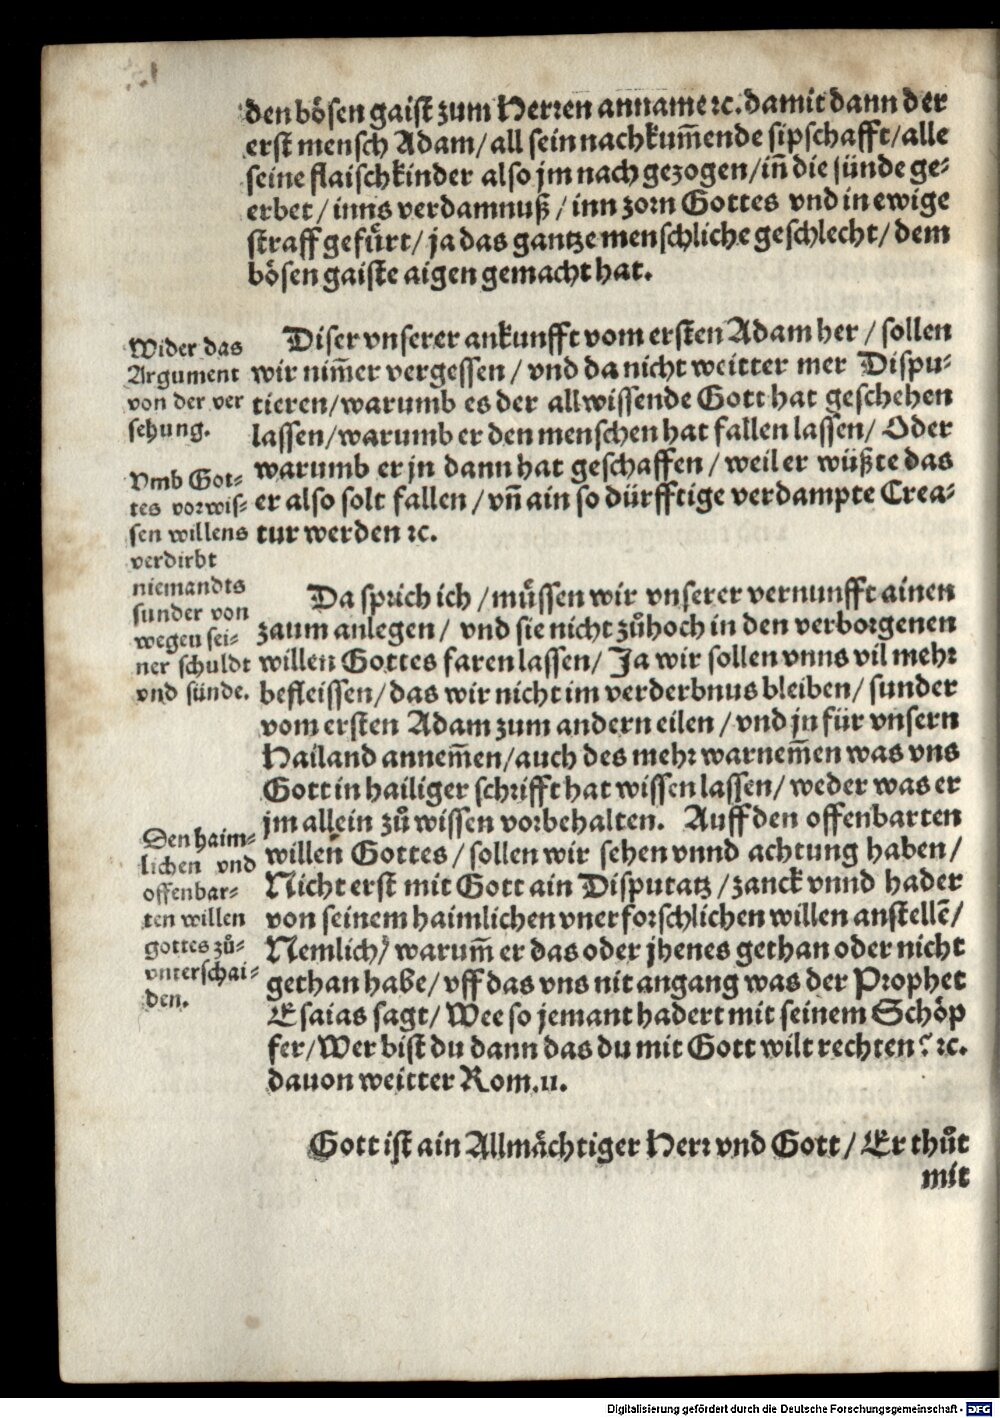 den bösen gaist zum Herren anname ꝛc. damit dann der
erst mensch Adam/ all sein nachkum̃ende sipschafft/ alle
seine flaischkinder also jm nach gezogen/ in̄ die sünde ge⸗
erbet/ inns verdamnuß/ inn zorn Gottes vnd in ewige
straff gefürt/ ja das gantze menschliche geschlecht/ dem
bösen gaiste aigen gemacht hat.
Diser vnserer ankunfft vom ersten Adam her/ sollen
wir nim̃er vergessen/ vnd da nicht weitter mer Dispu⸗
tieren/ warumb es der allwissende Gott hat geschehen
lassen/ warumb er den menschen hat fallen lassen/ Oder
warumb er jn dann hat geschaffen/ weil er wüßte das
er also solt fallen/ vn̄ ain so dürfftige verdampte Crea⸗
tur werden ꝛc.
Wider das
Argument
von der ver
sehung.
Vmb Got⸗
tes vorwis⸗
sen willens
verdirbt
niemandts
sunder von
wegen sei⸗
ner schuldt
vnd sünde.
Da sprich ich/ müssen wir vnserer vernunfft ainen
zaum anlegen/ vnd sie nicht zůhoch in den verborgenen
willen Gottes faren lassen/ Ja wir sollen vnns vil mehr
befleissen/ das wir nicht im verderbnus bleiben/ sunder
vom ersten Adam zum andern eilen/ vnd jn für vnsern
Hailand annem̃en/ auch des mehr warnem̃en was vns
Gott in hailiger schrifft hat wissen lassen/ weder was er
jm allein zů wissen vorbehalten. Auff den offenbarten
willen Gottes/ sollen wir sehen vnnd achtung haben/
Nicht erst mit Gott ain Disputatz/ zanck vnnd hader
von seinem haimlichen vnerforschlichen willen anstellē/
Nemlich/ warum̃ er das oder jhenes gethan oder nicht
gethan habe/ vff das vns nit angang was der Prophet
Esaias sagt/ Wee so jemant hadert mit seinem Schöp
fer/ Wer bist du dann das du mit Gott wilt rechten? ꝛc.
dauon weitter Rom. 11.
Den haim⸗
lichen vnd
offenbar⸗
ten willen
gottes zů⸗
vnterschai⸗
den.
Gott ist ain Allmächtiger Herr vnd Gott/ Er thůt
mit
Digitalisierung gefördert durch die Deutsche Forschungsgemeinschaft - DFG